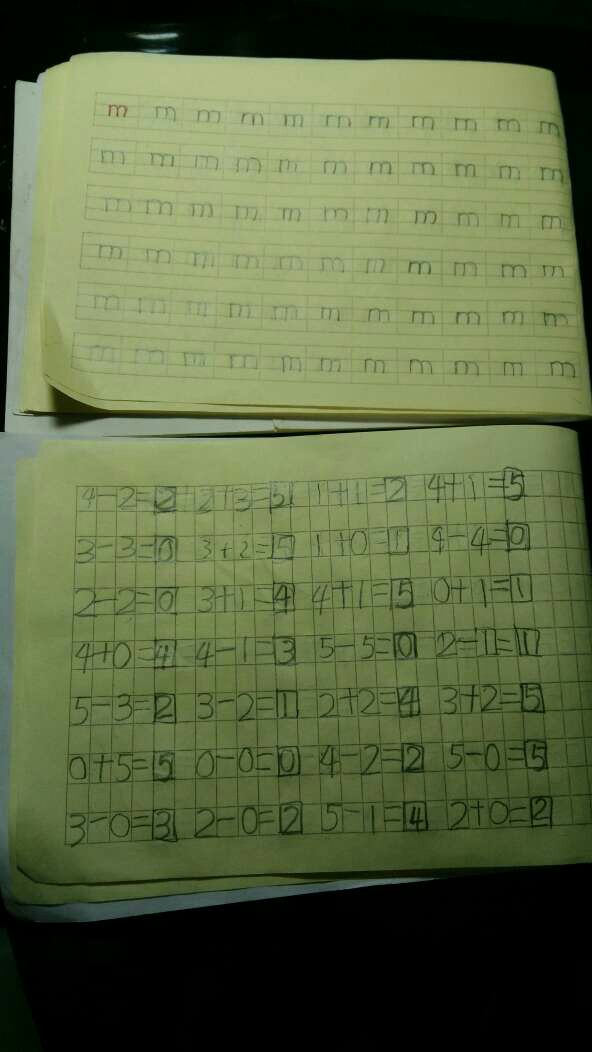 m m m m m m m m m m m
m m m m m m m m m m m
m m m m m m m m m m m
m m m m m m m m m m m
m m m m m m m m m m m
m m m m m m m m m m m
4-2=2 2+3=5 1+1=2 4+1=5
3-3=0 3+2=5 1+0=1 4-4=0
2-2=0 3+1=4 4+1=5 0+1=1
4+0=4 4-1=3 5-5=0 2-1=1
5-3=2 3-2=1 2+2=4 3+2=5
0+5=5 0-0=0 4-2=2 5-0=5
3-0=3 2-0=2 5-1=4 2+0=2